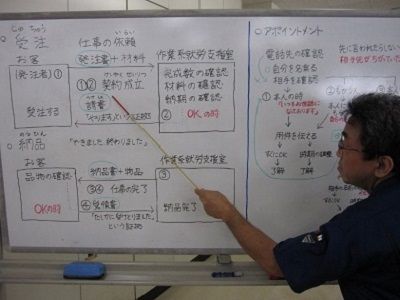 じゅちゅう
○受注
お客
(発注者)①
発注する
仕事の依頼
発注書+材料
けいやく せいりつ
①②契約成立
うけしょ
請書
作業系就労支援室
完成数の確認
材料の確認
納期の確認
② OKの時
のうひん
○納品
「やきました.終わりました」
お客
品物の確認
OKの時
納品書+物品
③④ 仕事の完了
④受領書
「たしかに受けとりました」
という証拠
作業系就労支援室
③
納品完了
○アポイントメント
電話先の確認
○自分を名のる
相手を確認
① 本人の時
「いつもお世話に
なっております」
用件を伝える
すぐにOK
了解
時間の調整
了解
先に言われたらいい